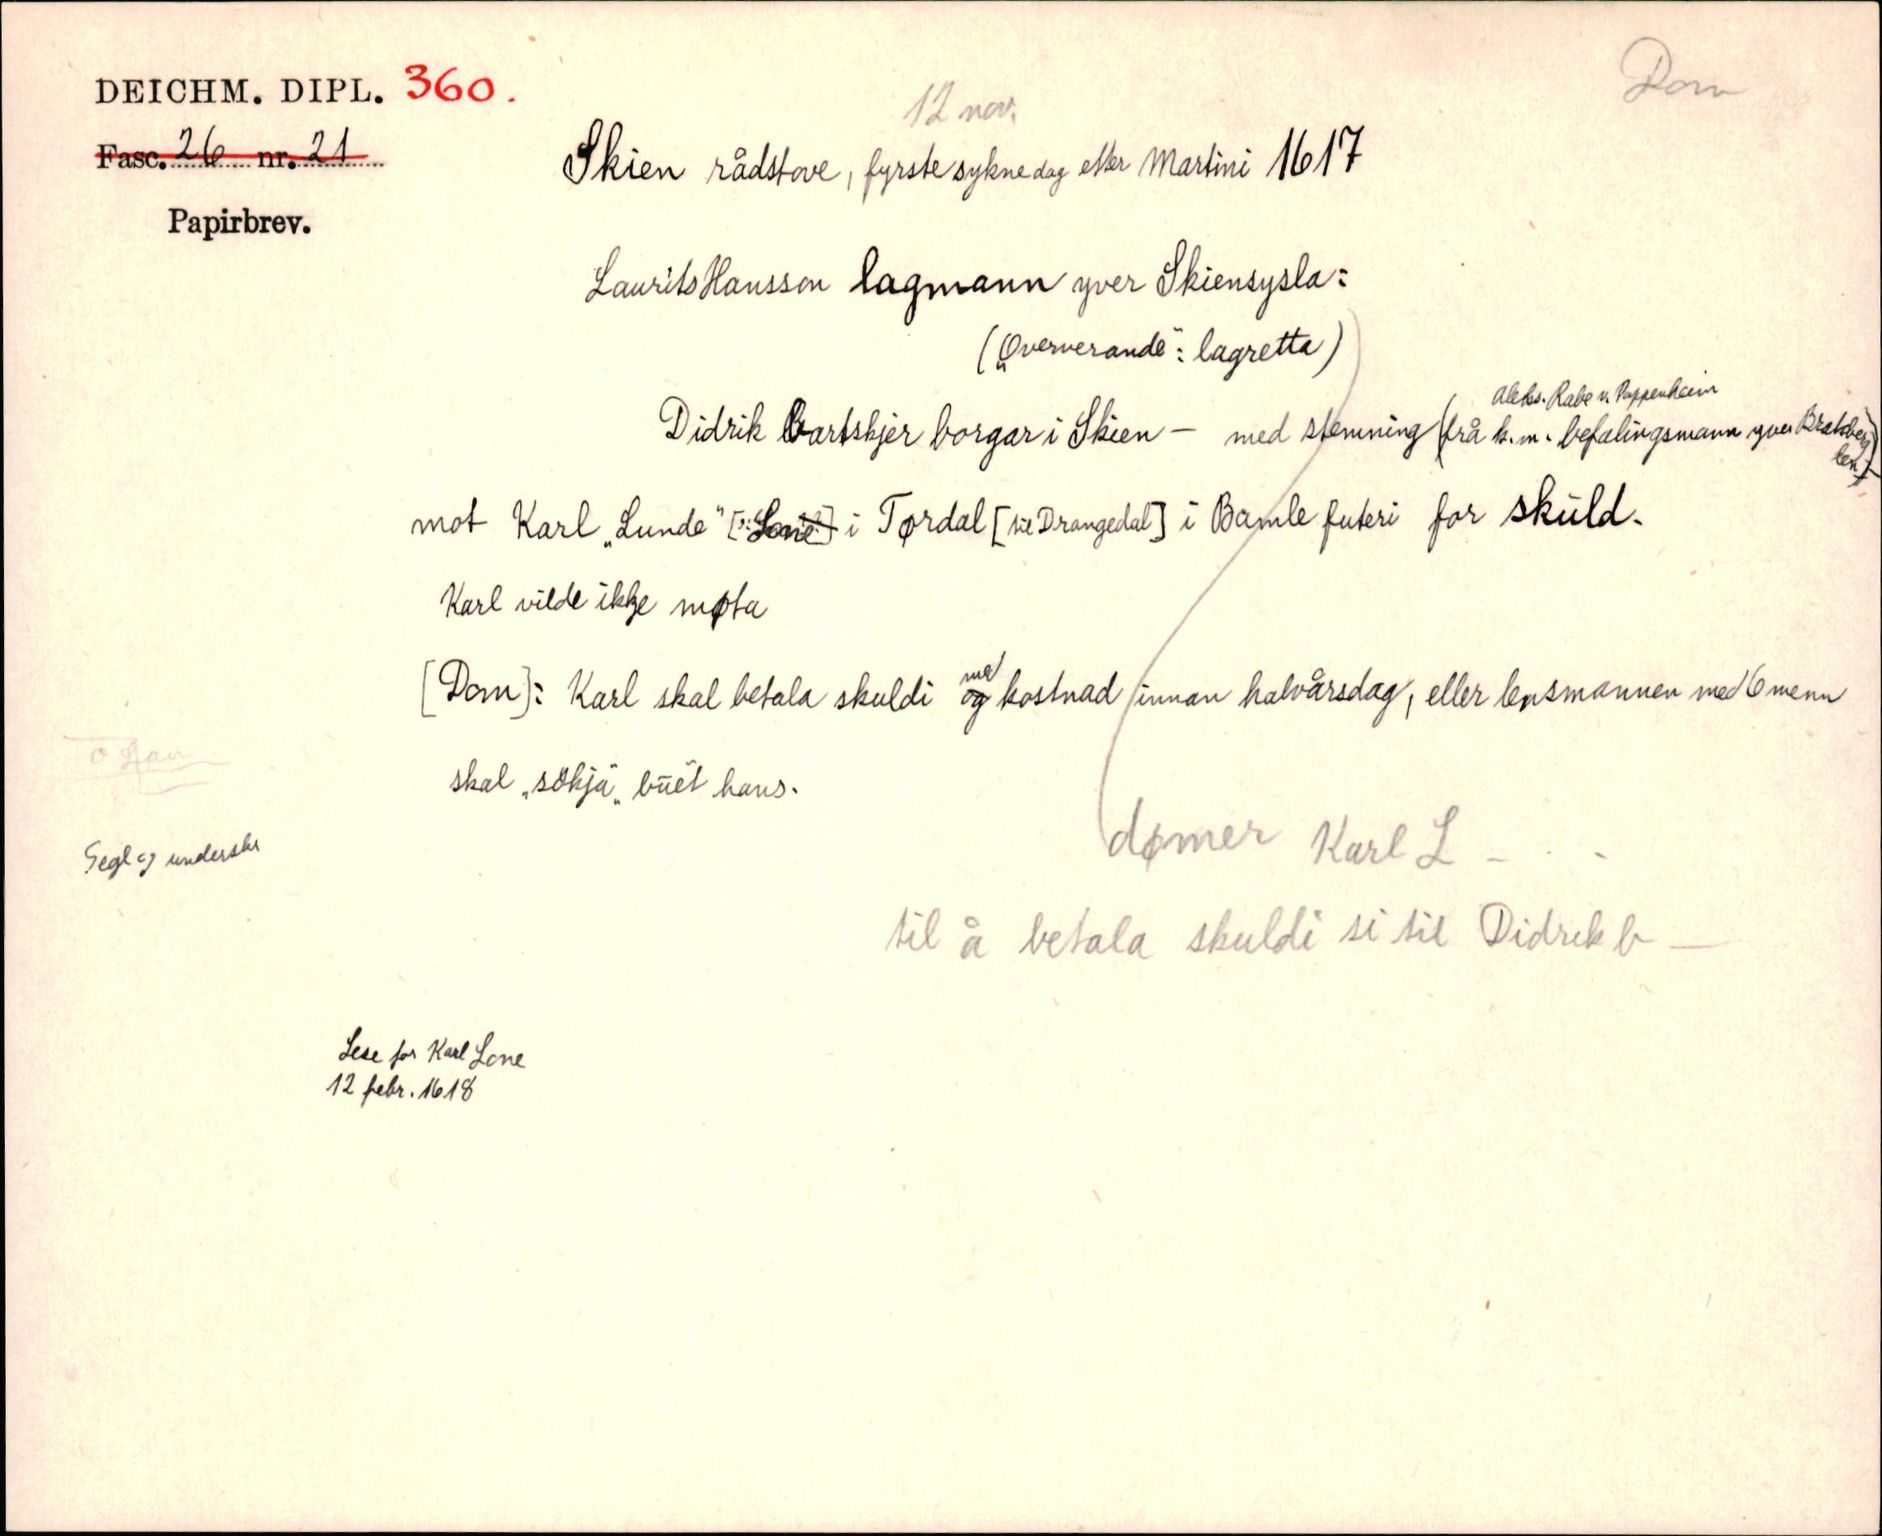 DEICHM. DIPL. 360.
Dom
Fasc. 26 nr. 21
12 nov.
Skien rådstove, fyrste syknedag etter Martini 1617
Papirbrev.
Laurits Hansson lagmann yver Skiensysla:
("Ververande": lagretta)
Aleks. Rabe v. Pappenheim
Didrik bartskjer borgar i Skien – med stemning (frå k.m. befalingsmann yver Bratsberg len)
mot Karl „Lunde" [„Lone"] i Tørdal [til Drangedal] i Bamle futeri for skuld.
Karl vilde ikkje møta
[Dom]: Karl skal betala skuldi og med kostnad innan halvårsdag, eller lensmannen med 6 menn
skal „sökja" buet hans.
Segl og underskr
dømer Karl L – . . –
til å betala skuldi si til Didrik b –
Lese for Karl Lone
12 febr. 1618